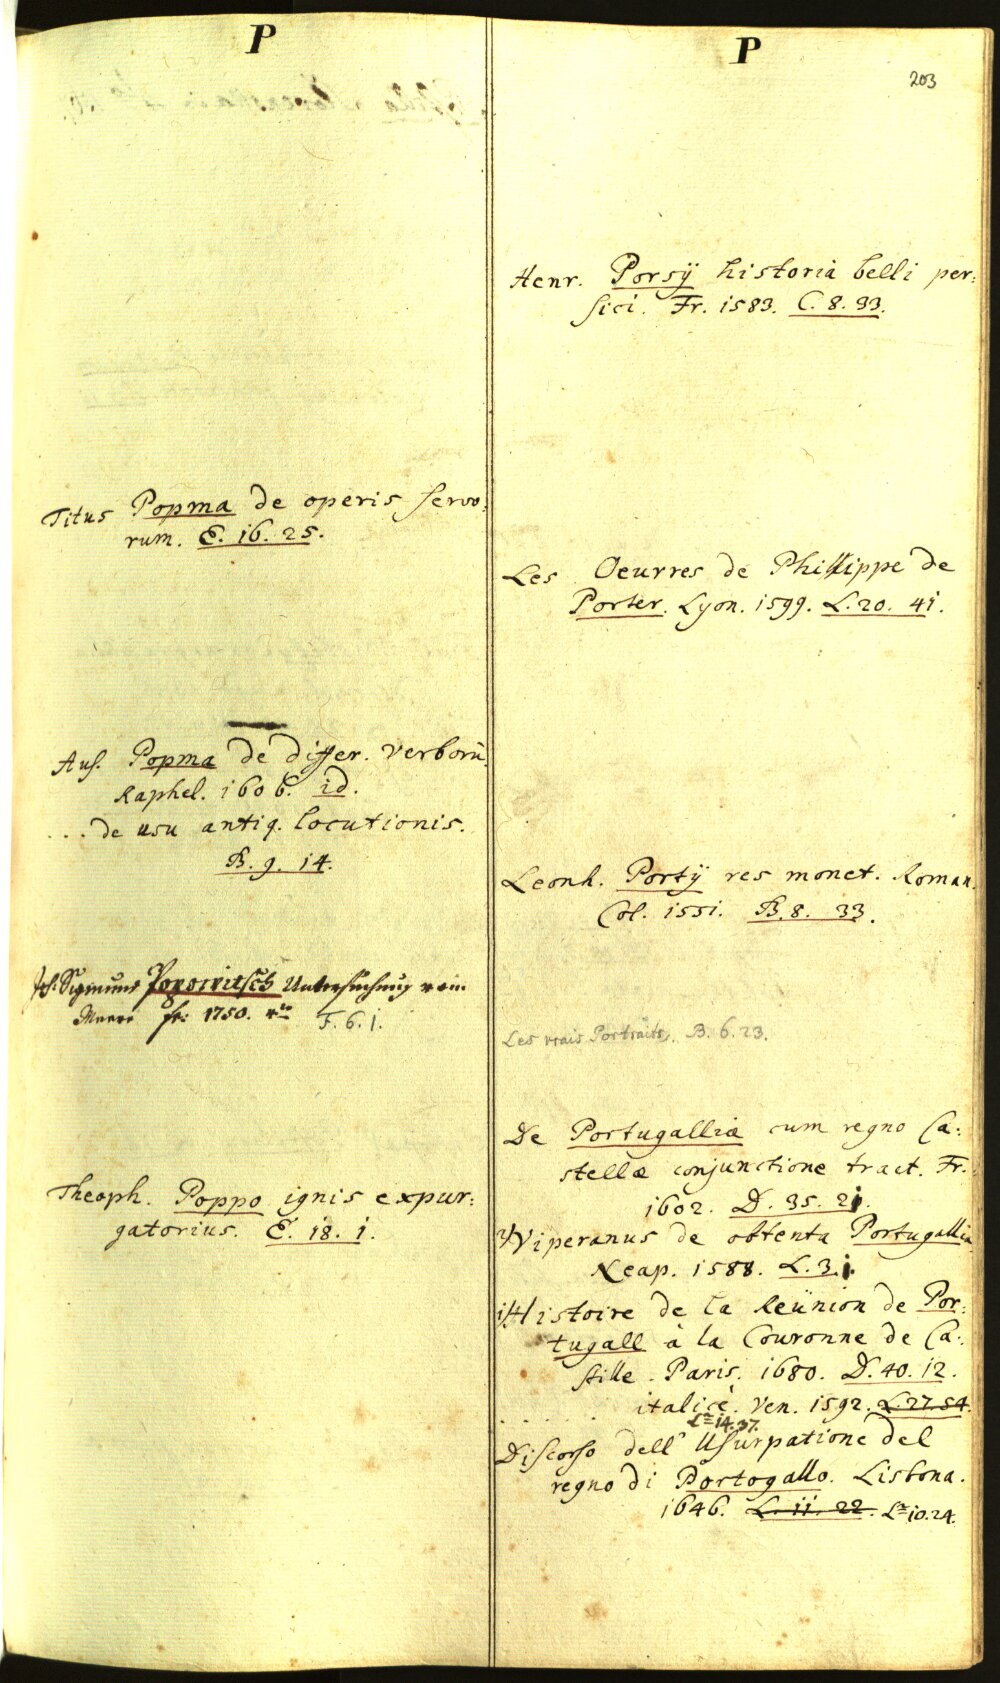 P
Titus Popma de operis servo:
rum. E. 16. 25.
Aus. Popma de differ. verborū.
Raphel. 1606. id.
... de usu antiq. locutionis.
B. 9. 14.
Joh: Sigmund Popowitsch Untersuchung vom
Meere fr: 1750. F. 6. 1.
Theoph. Poppo ignis expur:
gatorius. E. 18. 1.
P
203
Henr. Porsÿ historia belli per:
sici. Fr. 1583. C. 8. 33.
Les Oeuvres de Phillippe de
Porter. Lyon. 1599. L. 20. 41.
Leonh. Portÿ res monet. Roman.
Col. 1551. B. 8. 33.
Les vrais Portraits. B. 6. 23.
De Portugalliæ cum regno Ca:
stellæ conjunctione tract. Fr.
1602. D. 35. 21.
Viperanus de obtenta Portugallia
Neap. 1588. L. 31.
Histoire de la Reünion de Por:
tugall à la Couronne de Ca:
stille. Paris. 1680. D. 40. 12.
. . . . italicè. Ven. 1592. L. 27. 54.
14. 37.
Discorso dell' Usurpatione del
regno di Portogallo. Lisbona.
1646. L. 11. 22. 10. 24.